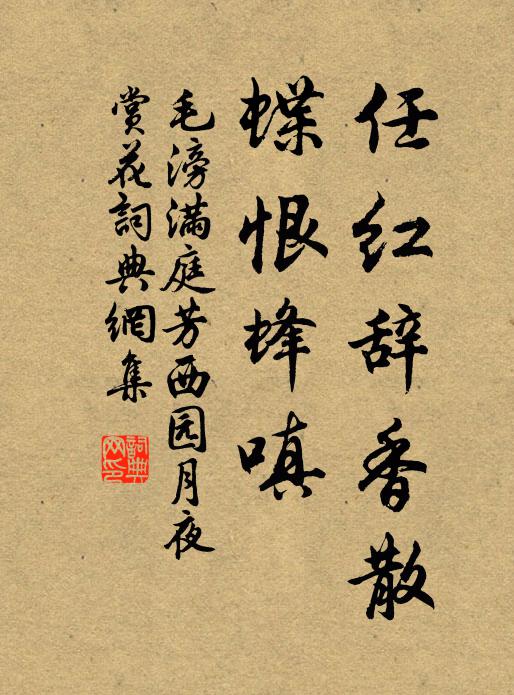 任红辞香散
蝶恨蜂嗔
毛滂满庭芳西园月夜
赏花詞典網集
詞典
网印